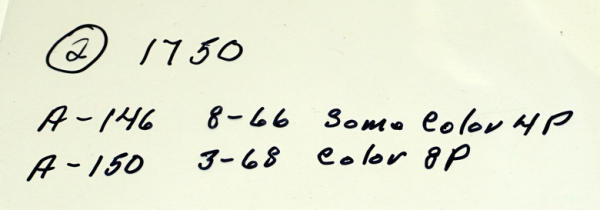 ② 1750
A-146 8-66 Some Color 4P
A-150 3-68 Color 8P